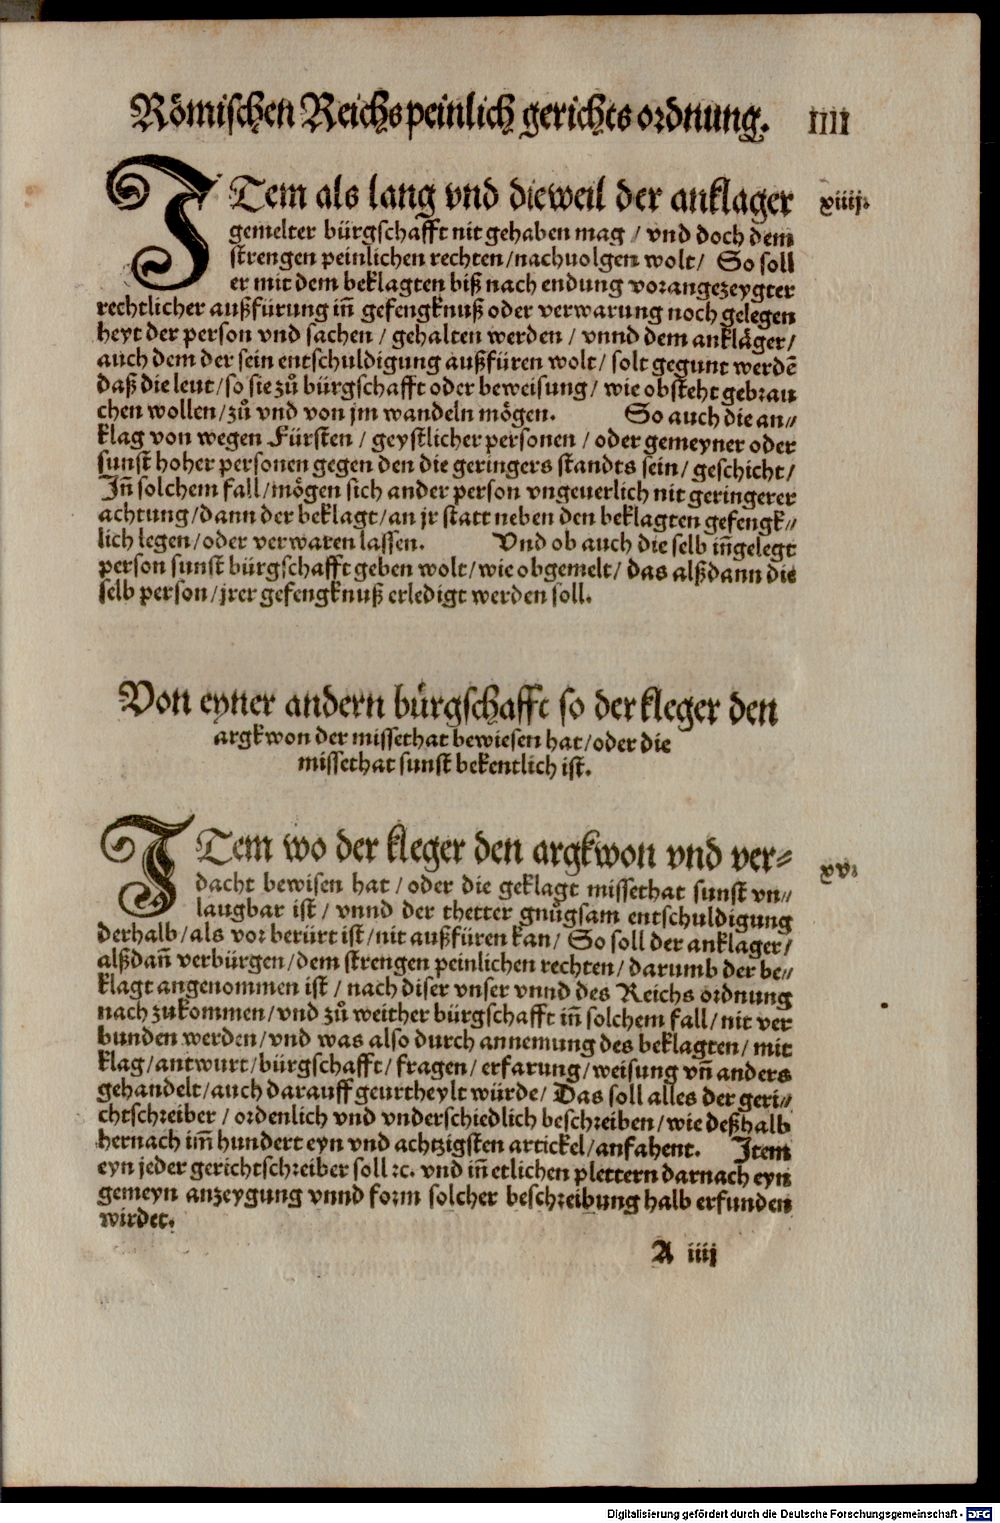 Römischen Reichs peinlich gerichts ordnung. IIII
ITem als lang vnd dieweil der anklager xiiij.
gemelter bürgschafft nit gehaben mag / vnd doch dem
strengen peinlichen rechten / nachuolgen wolt / So soll
er mit dem beklagten biß nach endung vorangezeygter
rechtlicher außfürung iñ gefengknuß oder verwarung noch gelegen
heyt der person vnd sachen / gehalten werden / vnnd dem ankläger /
auch dem der sein entschuldigung außfüren wolt / solt gegunt werdē
daß die leut / so sie zů bürgschafft oder beweisung / wie obsteht gebrau
chen wollen / zů vnd von jm wandeln mögen. So auch die an⸗
klag von wegen Fürsten / geystlicher personen / oder gemeyner oder
sunst hoher personen gegen den die geringers standts sein / geschicht /
Iñ solchem fall / mögen sich ander person vngeuerlich nit geringerer
achtung / dann der beklagt / an jr statt neben den beklagten gefengk⸗
lich legen / oder verwaren lassen. Vnd ob auch die selb iñgelegt
person sunst bürgschafft geben wolt / wie obgemelt / das alßdann die
selb person / jrer gefengknuß erledigt werden soll.
Von eyner andern bürgschafft so der kleger den
argkwon der missethat bewiesen hat / oder die
missethat sunst bekentlich ist.
ITem wo der kleger den argkwon vnd ver⸗ xv.
dacht bewisen hat / oder die geklagt missethat sunst vn⸗
laugbar ist / vnnd der thetter gnůgsam entschuldigung
derhalb / als vor berürt ist / nit außfüren kan / So soll der anklager /
alßdañ verbürgen / dem strengen peinlichen rechten / darumb der be⸗
klagt angenommen ist / nach diser vnser vnnd des Reichs ordnung
nach zukommen / vnd zů weither bürgschafft iñ solchem fall / nit ver
bunden werden / vnd was also durch annemung des beklagten / mit
klag / antwurt / bürgschafft / fragen / erfarung / weisung vñ anders
gehandelt / auch darauff geurtheylt würde / Das soll alles der geri⸗
chtschreiber / ordenlich vnd vnderschiedlich beschreiben / wie deßhalb
hernach im̃ hundert eyn vnd achtzigsten artickel / anfahent. Item
eyn jeder gerichtschreiber soll ꝛc. vnd iñ etlichen plettern darnach eyn
gemeyn anzeygung vnnd form solcher beschreibung halb erfunden
wirdet.
A iiij
Digitalisierung gefördert durch die Deutsche Forschungsgemeinschaft - DFG